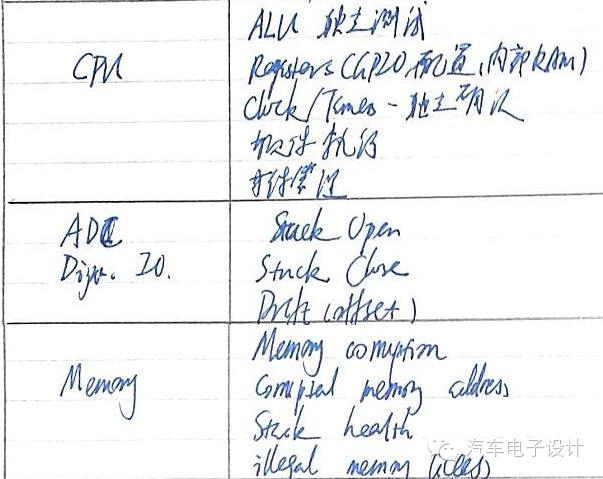 CPU
ALU 独立测试
Registers (GPIO 配置, 内部RAM)
Clock/Timer - 独立确认
ADC
Digit. IO.
Stuck Open
Stuck Close
Drift (offset)
Memory
Memory corruption
Corrupted memory address
Stack health
illegal memory access
汽车电子设计